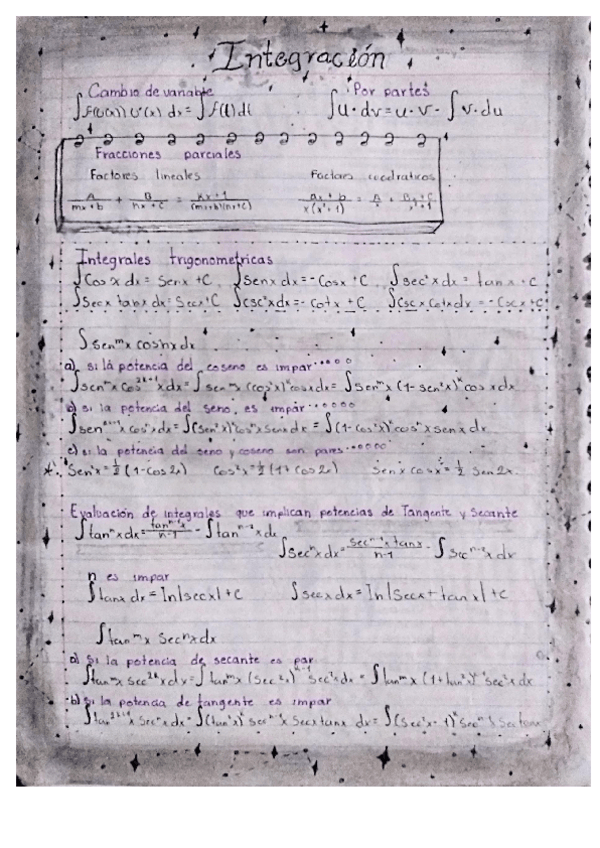 Integración
Cambio de variable Por partes
∫f(u(x)) u'(x) dx = ∫f(u) du ∫u·dv = u·v - ∫v·du
Fracciones parciales
Factores lineales Factores cuadraticos
A/(mx+b) + B/(nx+c)
Integrales trigonometricas
∫Cos x dx = Sen x + C ∫Sen x dx = -Cos x + C ∫sec²x dx = tan x + C
∫Sec x tan x dx = Sec x + C ∫csc²x dx = -Cot x + C ∫Csc x Cot x dx = -Csc x + C
∫Senᵐx cosⁿx dx
a) si lá potencia del coseno es impar
∫senᵐx cos²ᵏ⁺¹x dx = ∫senᵐx (cos²x)ᵏ cos x dx = ∫Senᵐx (1-sen²x)ᵏ cos x dx
b) si la potencia del seno, es impar
∫sen²ᵏ⁺¹x cosⁿx dx = ∫(sen²x)ᵏ cosⁿx sen x dx = ∫(1-cos²x)ᵏ cosⁿx sen x dx
c) si la potencia del seno y coseno son pares
Sen²x = ½(1-Cos 2x) Cos²x = ½(1+Cos 2x) Sen x cos x = ½ Sen 2x
Evaluación de integrales que implican potencias de Tangente y Secante
∫tanⁿx dx = tanⁿ⁻¹x/(n-1) - ∫tanⁿ⁻²x dx
∫Secⁿx dx = Secⁿ⁻²x tanx/(n-1) - ∫secⁿ⁻²x dx
n es impar
∫tanx dx = ln|secx| + C ∫secx dx = ln|Secx + tan x| + C
∫tanᵐx Secⁿx dx
a) Si la potencia de secante es par
∫tanᵐx sec²ᵏx dx = ∫tanᵐx (Sec²x)ᵏ⁻¹ sec²x dx = ∫tanᵐx (1+tan²x)ᵏ⁻¹ Sec²x dx
b) Si la potencia de tangente es impar
∫tan²ᵏ⁺¹x Secⁿx dx = ∫(tan²x)ᵏ secⁿ⁻¹x Secx tanx dx = ∫(Sec²x-1)ᵏ secⁿ⁻¹x Sec tanx